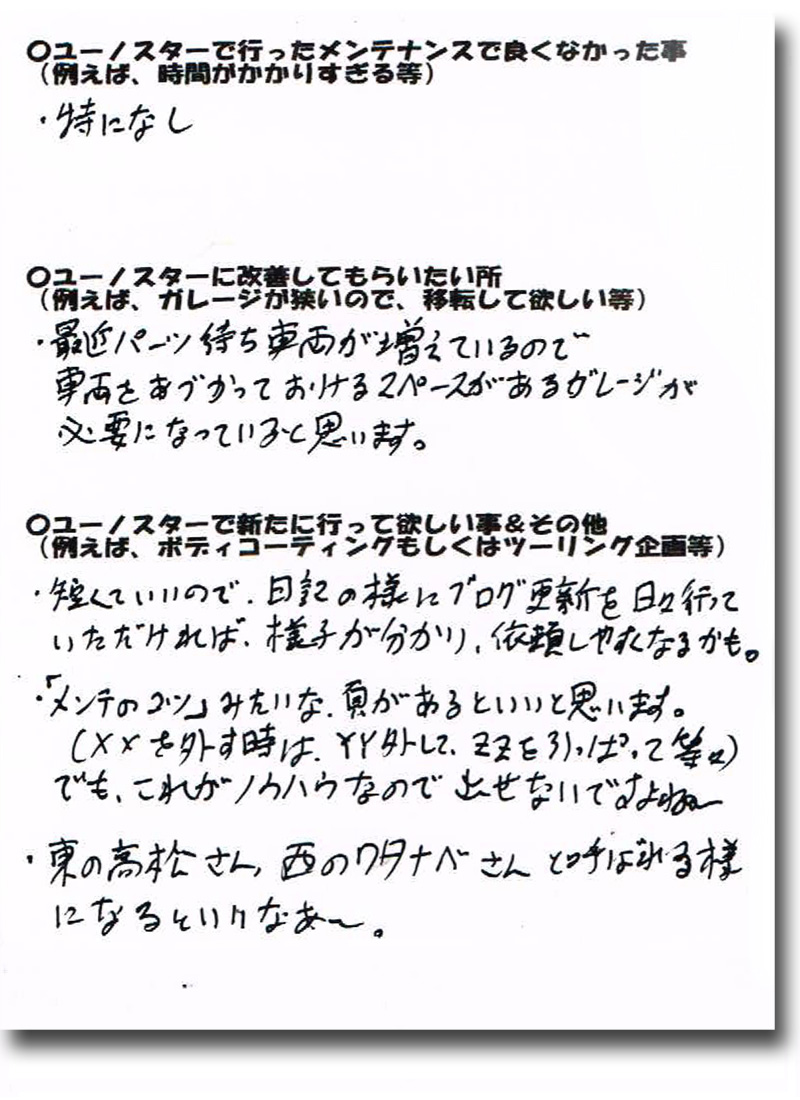 ○ユーノスターで行ったメンテナンスで良くなかった事
（例えば、時間がかかりすぎる等）
・特になし
○ユーノスターに改善してもらいたい所
（例えば、ガレージが狭いので、移転して欲しい等）
・最近パーツ待ち車両が増えているので
車両をあづかっておけるスペースがあるガレージが
必要になっていると思います。
○ユーノスターで新たに行って欲しい事＆その他
（例えば、ボディコーティングもしくはツーリング企画等）
・短くていいので、日記の様にブログ更新を日々行って
いただければ、様子が分かり、依頼しやすくなるかも。
・「メンテのコツ」みたいな、頁があるといいと思います。
（XXを外す時は、YY外して、ZZを引っぱって等々）
でも、これがノウハウなので出せないですよね〜
・東の高松さん、西のワタナベさんと呼ばれる様
になるといいなぁ〜。